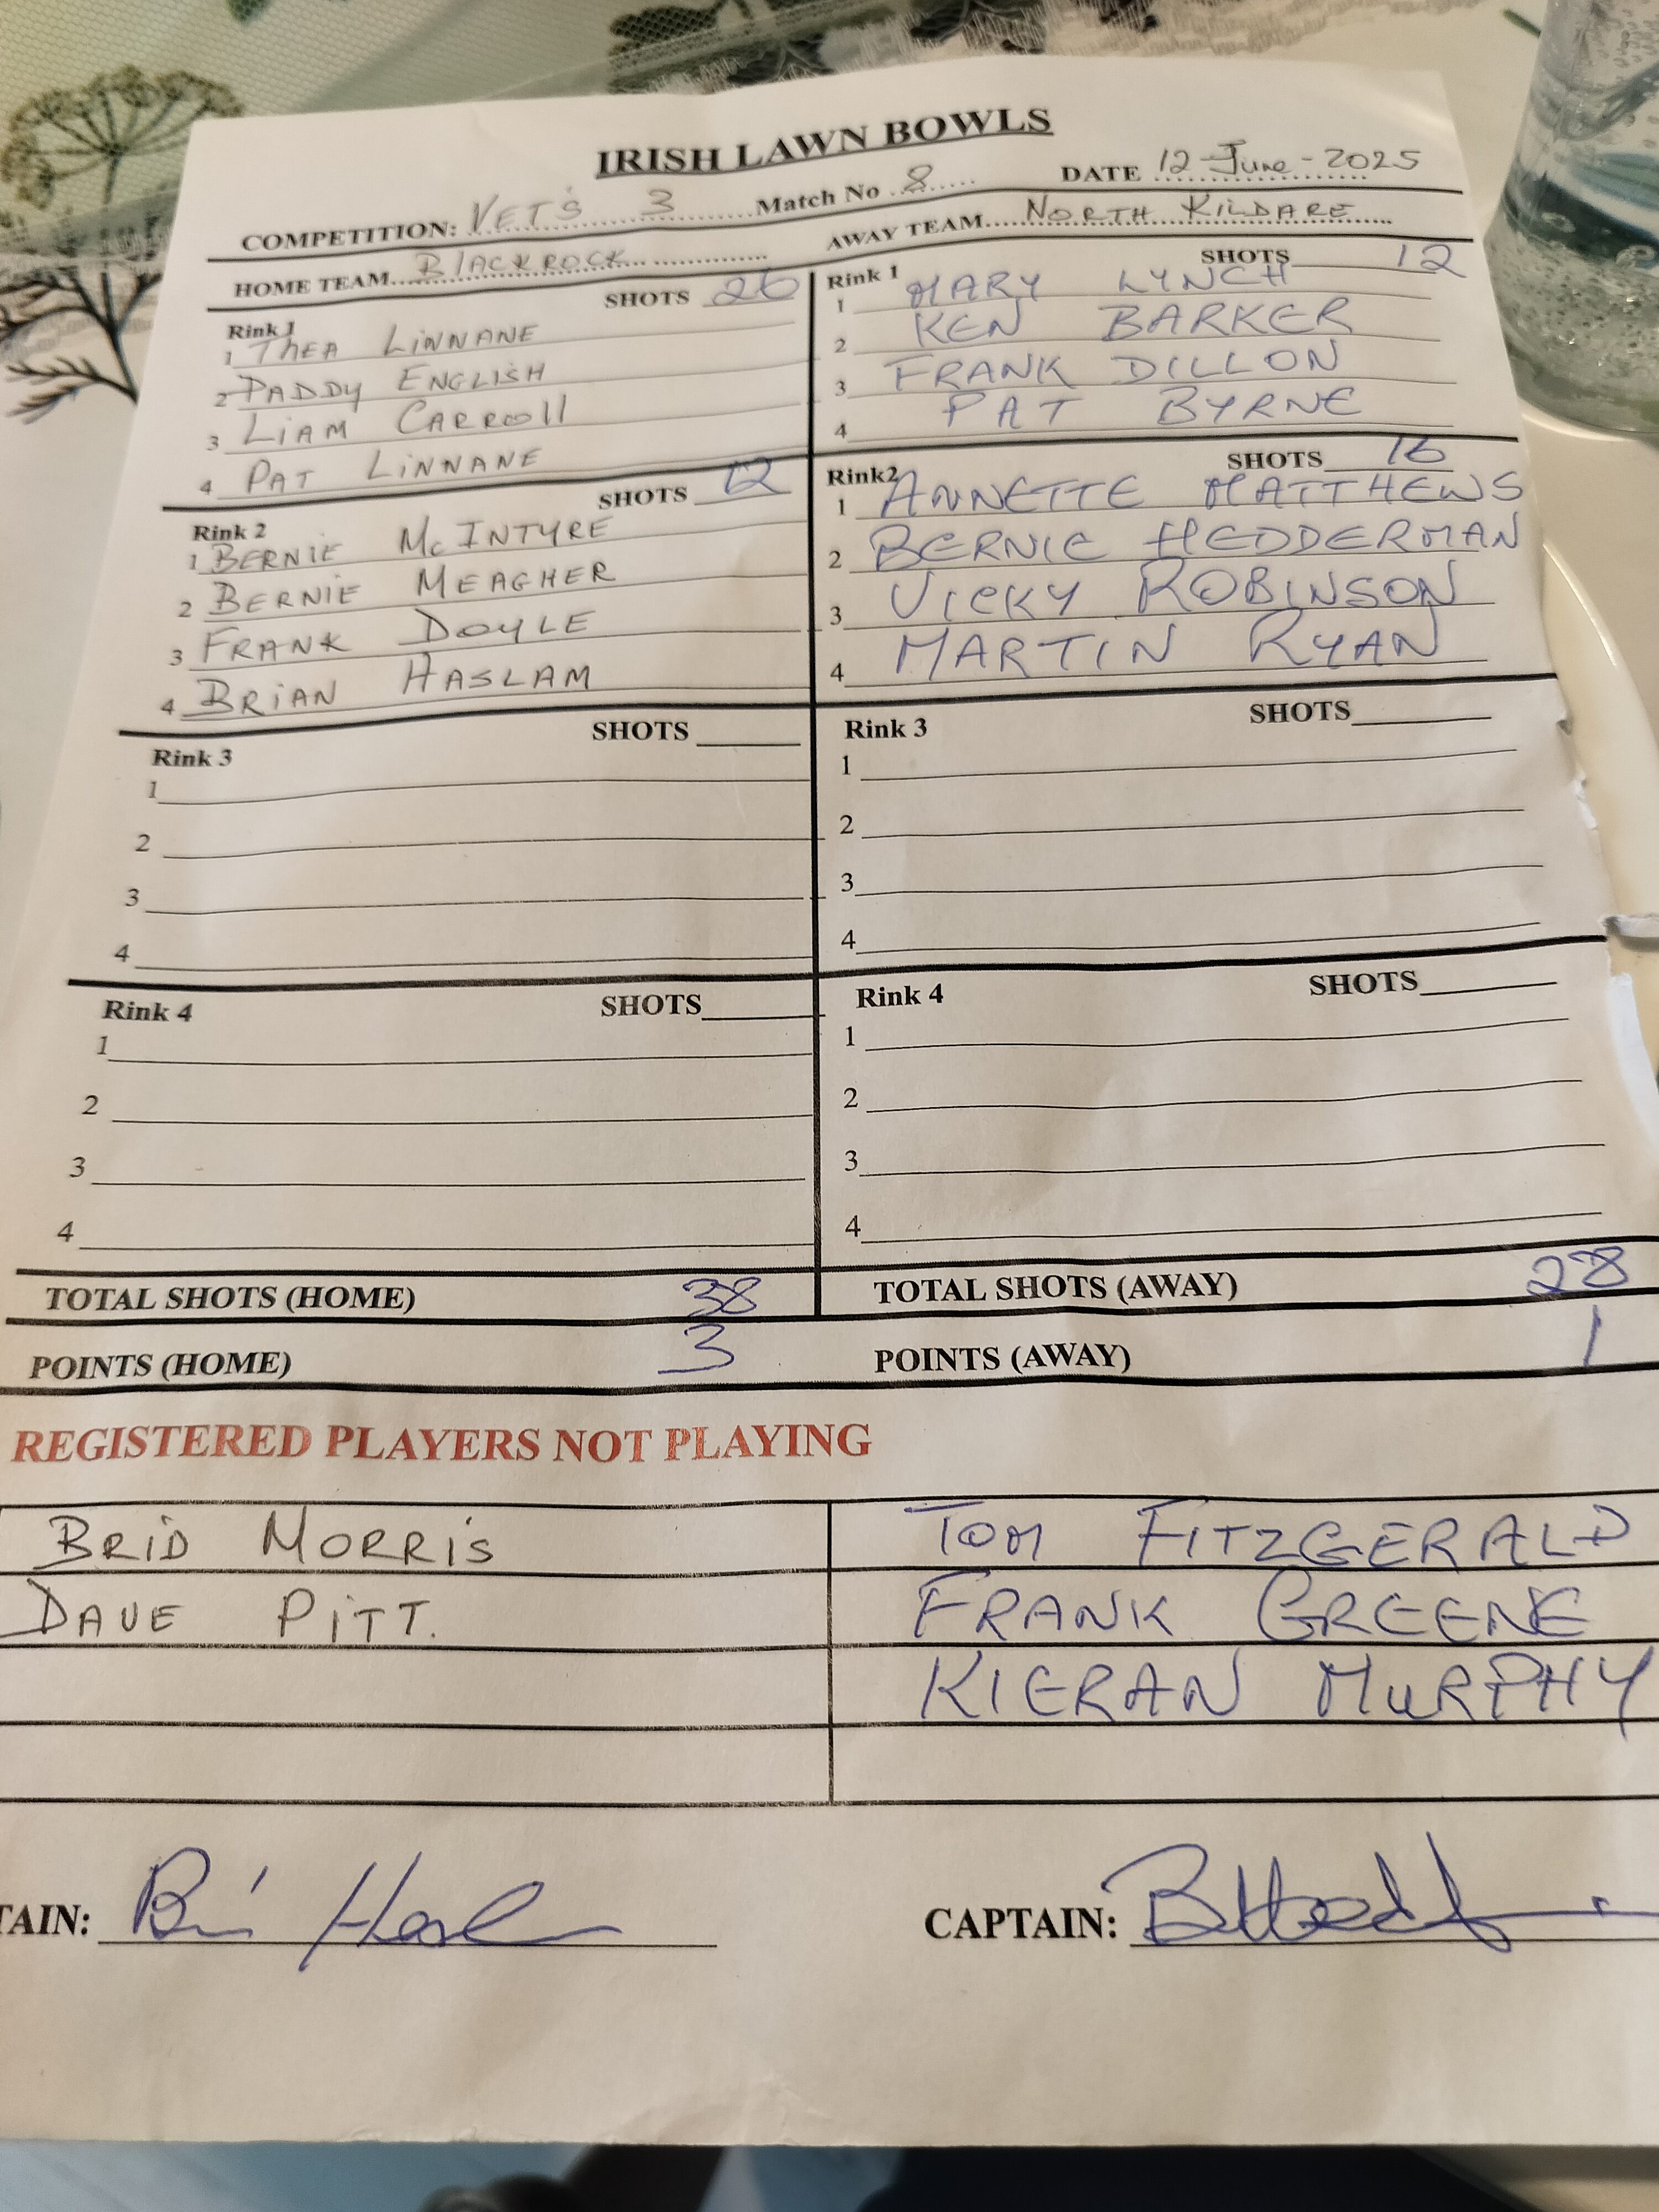 IRISH LAWN BOWLS
COMPETITION: VET'S 3 Match No 8 DATE 12-June-2025
HOME TEAM BLACKROCK AWAY TEAM NORTH KILDARE
Rink 1 SHOTS 26
1 THEA LINNANE
2 PADDY ENGLISH
3 LIAM CARROLL
4 PAT LINNANE
Rink 1 SHOTS 12
1 MARY LYNCH
2 KEN BARKER
3 FRANK DILLON
4 PAT BYRNE
Rink 2 SHOTS 12
1 BERNIE McINTYRE
2 BERNIE MEAGHER
3 FRANK DOYLE
4 BRIAN HASLAM
Rink2 SHOTS 16
1 ANNETTE MATTHEWS
2 BERNIE HEDDERMAN
3 VICKY ROBINSON
4 MARTIN RYAN
Rink 3 SHOTS
1
2
3
4
Rink 3 SHOTS
1
2
3
4
Rink 4 SHOTS
1
2
3
4
Rink 4 SHOTS
1
2
3
4
TOTAL SHOTS (HOME) 38 TOTAL SHOTS (AWAY) 28
POINTS (HOME) 3 POINTS (AWAY) 1
REGISTERED PLAYERS NOT PLAYING
BRID MORRIS TOM FITZGERALD
DAVE PITT. FRANK GREENE
KIERAN MURPHY
TAIN: CAPTAIN: